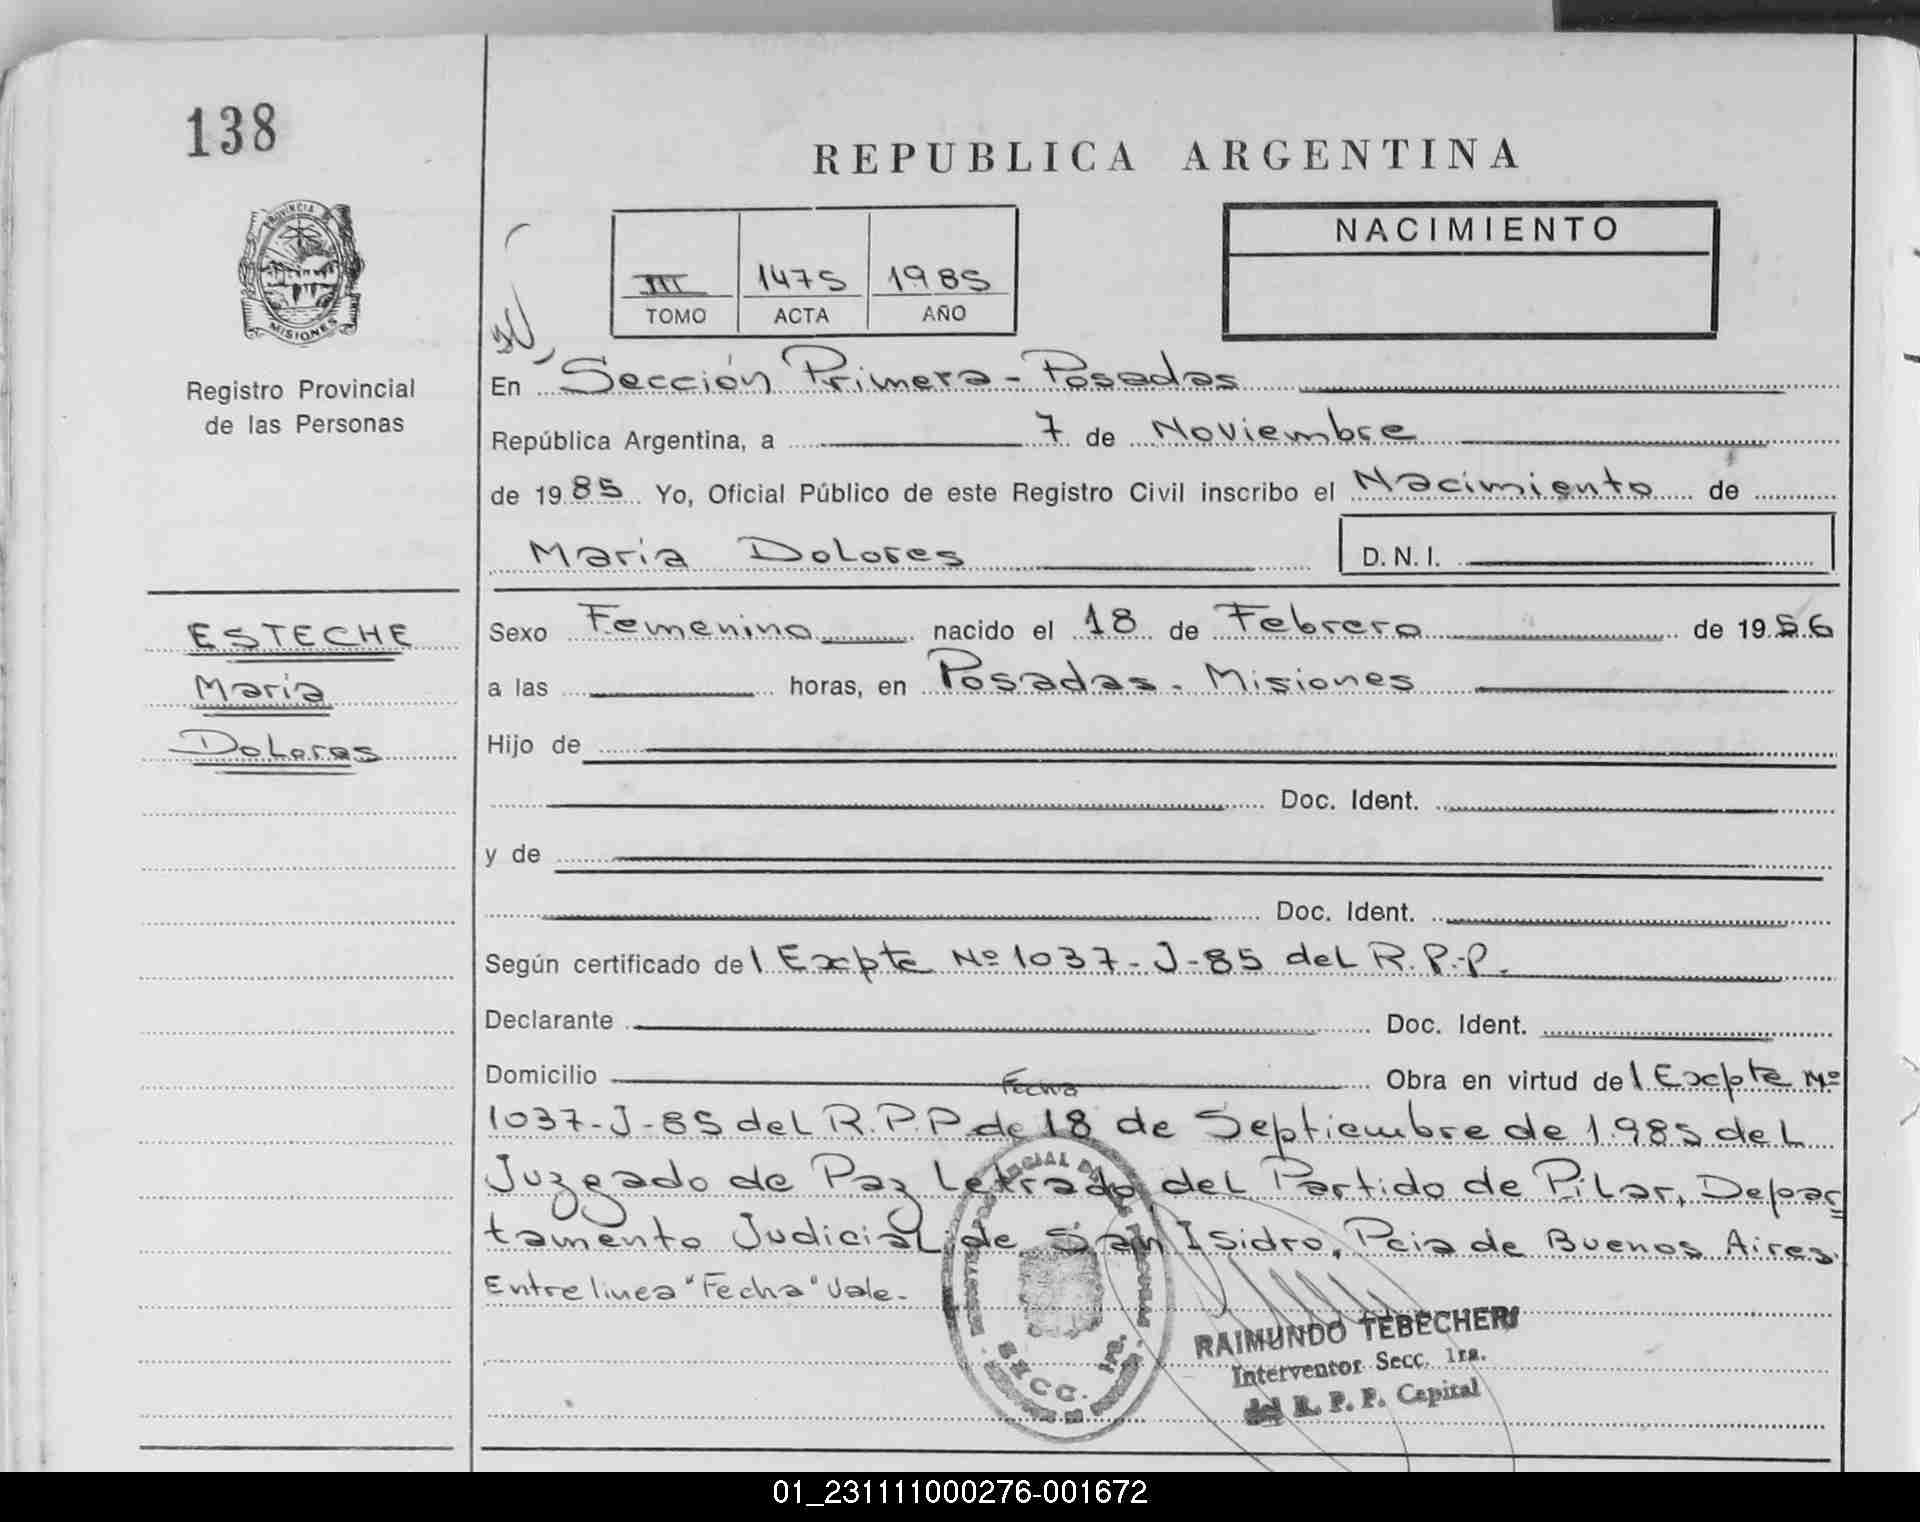 138
REPUBLICA ARGENTINA
PROVINCIA
MISIONES
Registro Provincial
de las Personas
III 1475 1985
TOMO ACTA AÑO
NACIMIENTO
En Sección Primera - Posadas
República Argentina, a 7 de Noviembre
de 1985 Yo, Oficial Público de este Registro Civil inscribo el Nacimiento de
Maria Dolores D.N.I.
ESTECHE
Maria
Dolores
Sexo Femenino nacido el 18 de Febrero de 1956
a las horas, en Posadas - Misiones
Hijo de
Doc. Ident.
y de
Doc. Ident.
Según certificado del Expte Nº 1037-J-85 del R.P.P.
Declarante Doc. Ident.
Domicilio Obra en virtud del Expte Nº
Fecha
1037-J-85 del R.P.P. de 18 de Septiembre de 1.985 del
Juzgado de Paz Letrado del Partido de Pilar, Depar
tamento Judicial de San Isidro, Pcia de Buenos Aires.
Entre linea "Fecha" Vale.
SECC. 1ra.
RAIMUNDO TEBECHERI
Interventor Secc. 1ra.
del R. P. P. Capital
01_231111000276-001672